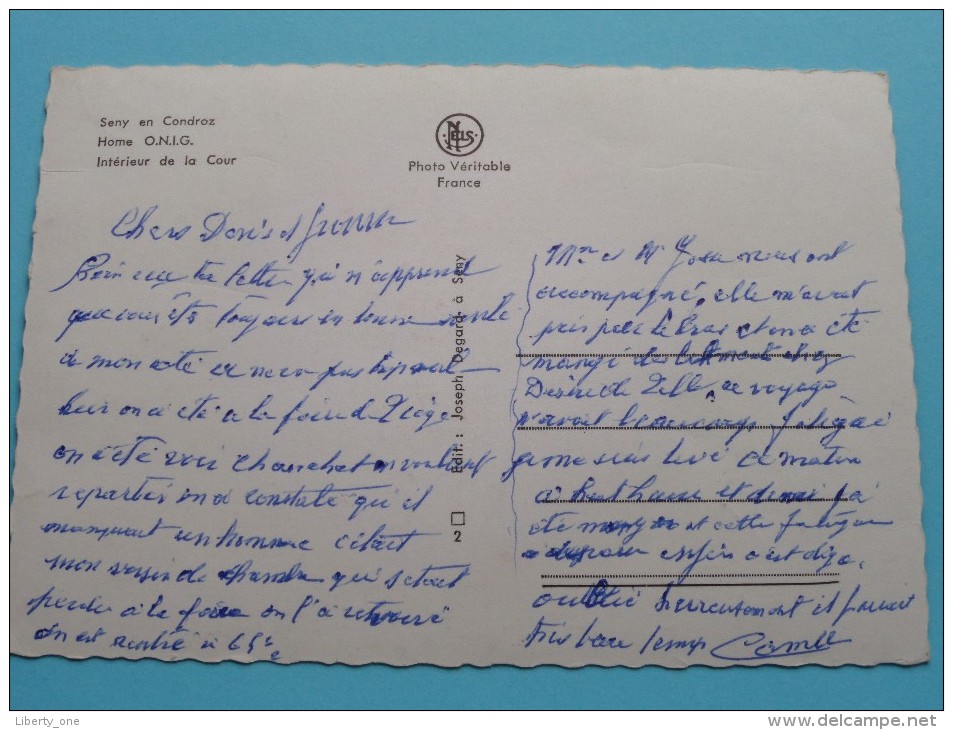 Seny en Condroz
Home O.N.I.G.
Intérieur de la Cour
NELS
Photo Véritable
France
Edit.: Joseph Degard à Seny
2
Chers Denis et
Bien reçu ta lettre qui m'apprend
que vous êtes toujours en bonne santé
à mon coté ce ne va pas
on a été a la foire de Liège
on a été voir Chanchet en voulant
repartir on a constaté qu'il
manquait un homme c'était
mon voisin de chambre qui s'était
perdu à la foire on l'a retrouvé
On est rentré à 6h
Mme et Mr nous ont
accompagné, elle m'avait
pris par le bras et on a été
mangé des chez
Désiré de ce voyage
m'avait beaucoup fatigué
je me suis levé ce matin
à huit heure et demi j'ai
été et cette fatigue
a disparu enfin c'est déjà
oublié heureusement il faisait
très beau temps Camille
Liberty_one
http://www.delcampe.net